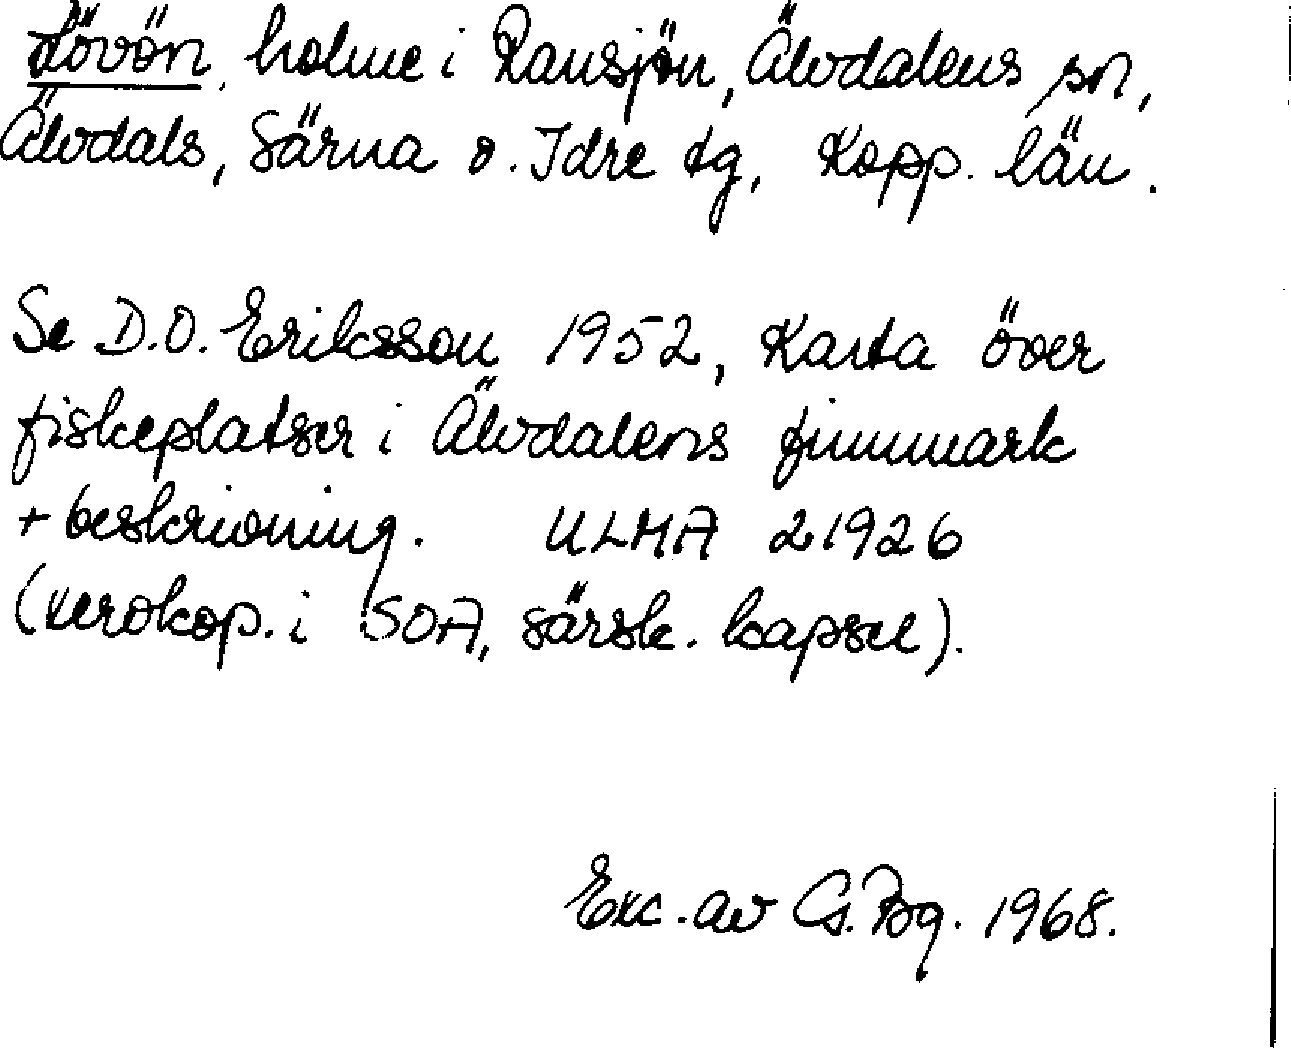 Lövön, holme i Ransjön, Älvdalens sn,
Älvdals, Särna o. Idre tg, Kopp. län.
Se D.O. Eriksson 1952, Karta över
fiskeplatser i Älvdalens finnmark
+ beskrivning. ULMA 21926
(xerokop. i SOA, särsk. kapsel).
Exc. av G. Bg. 1968.